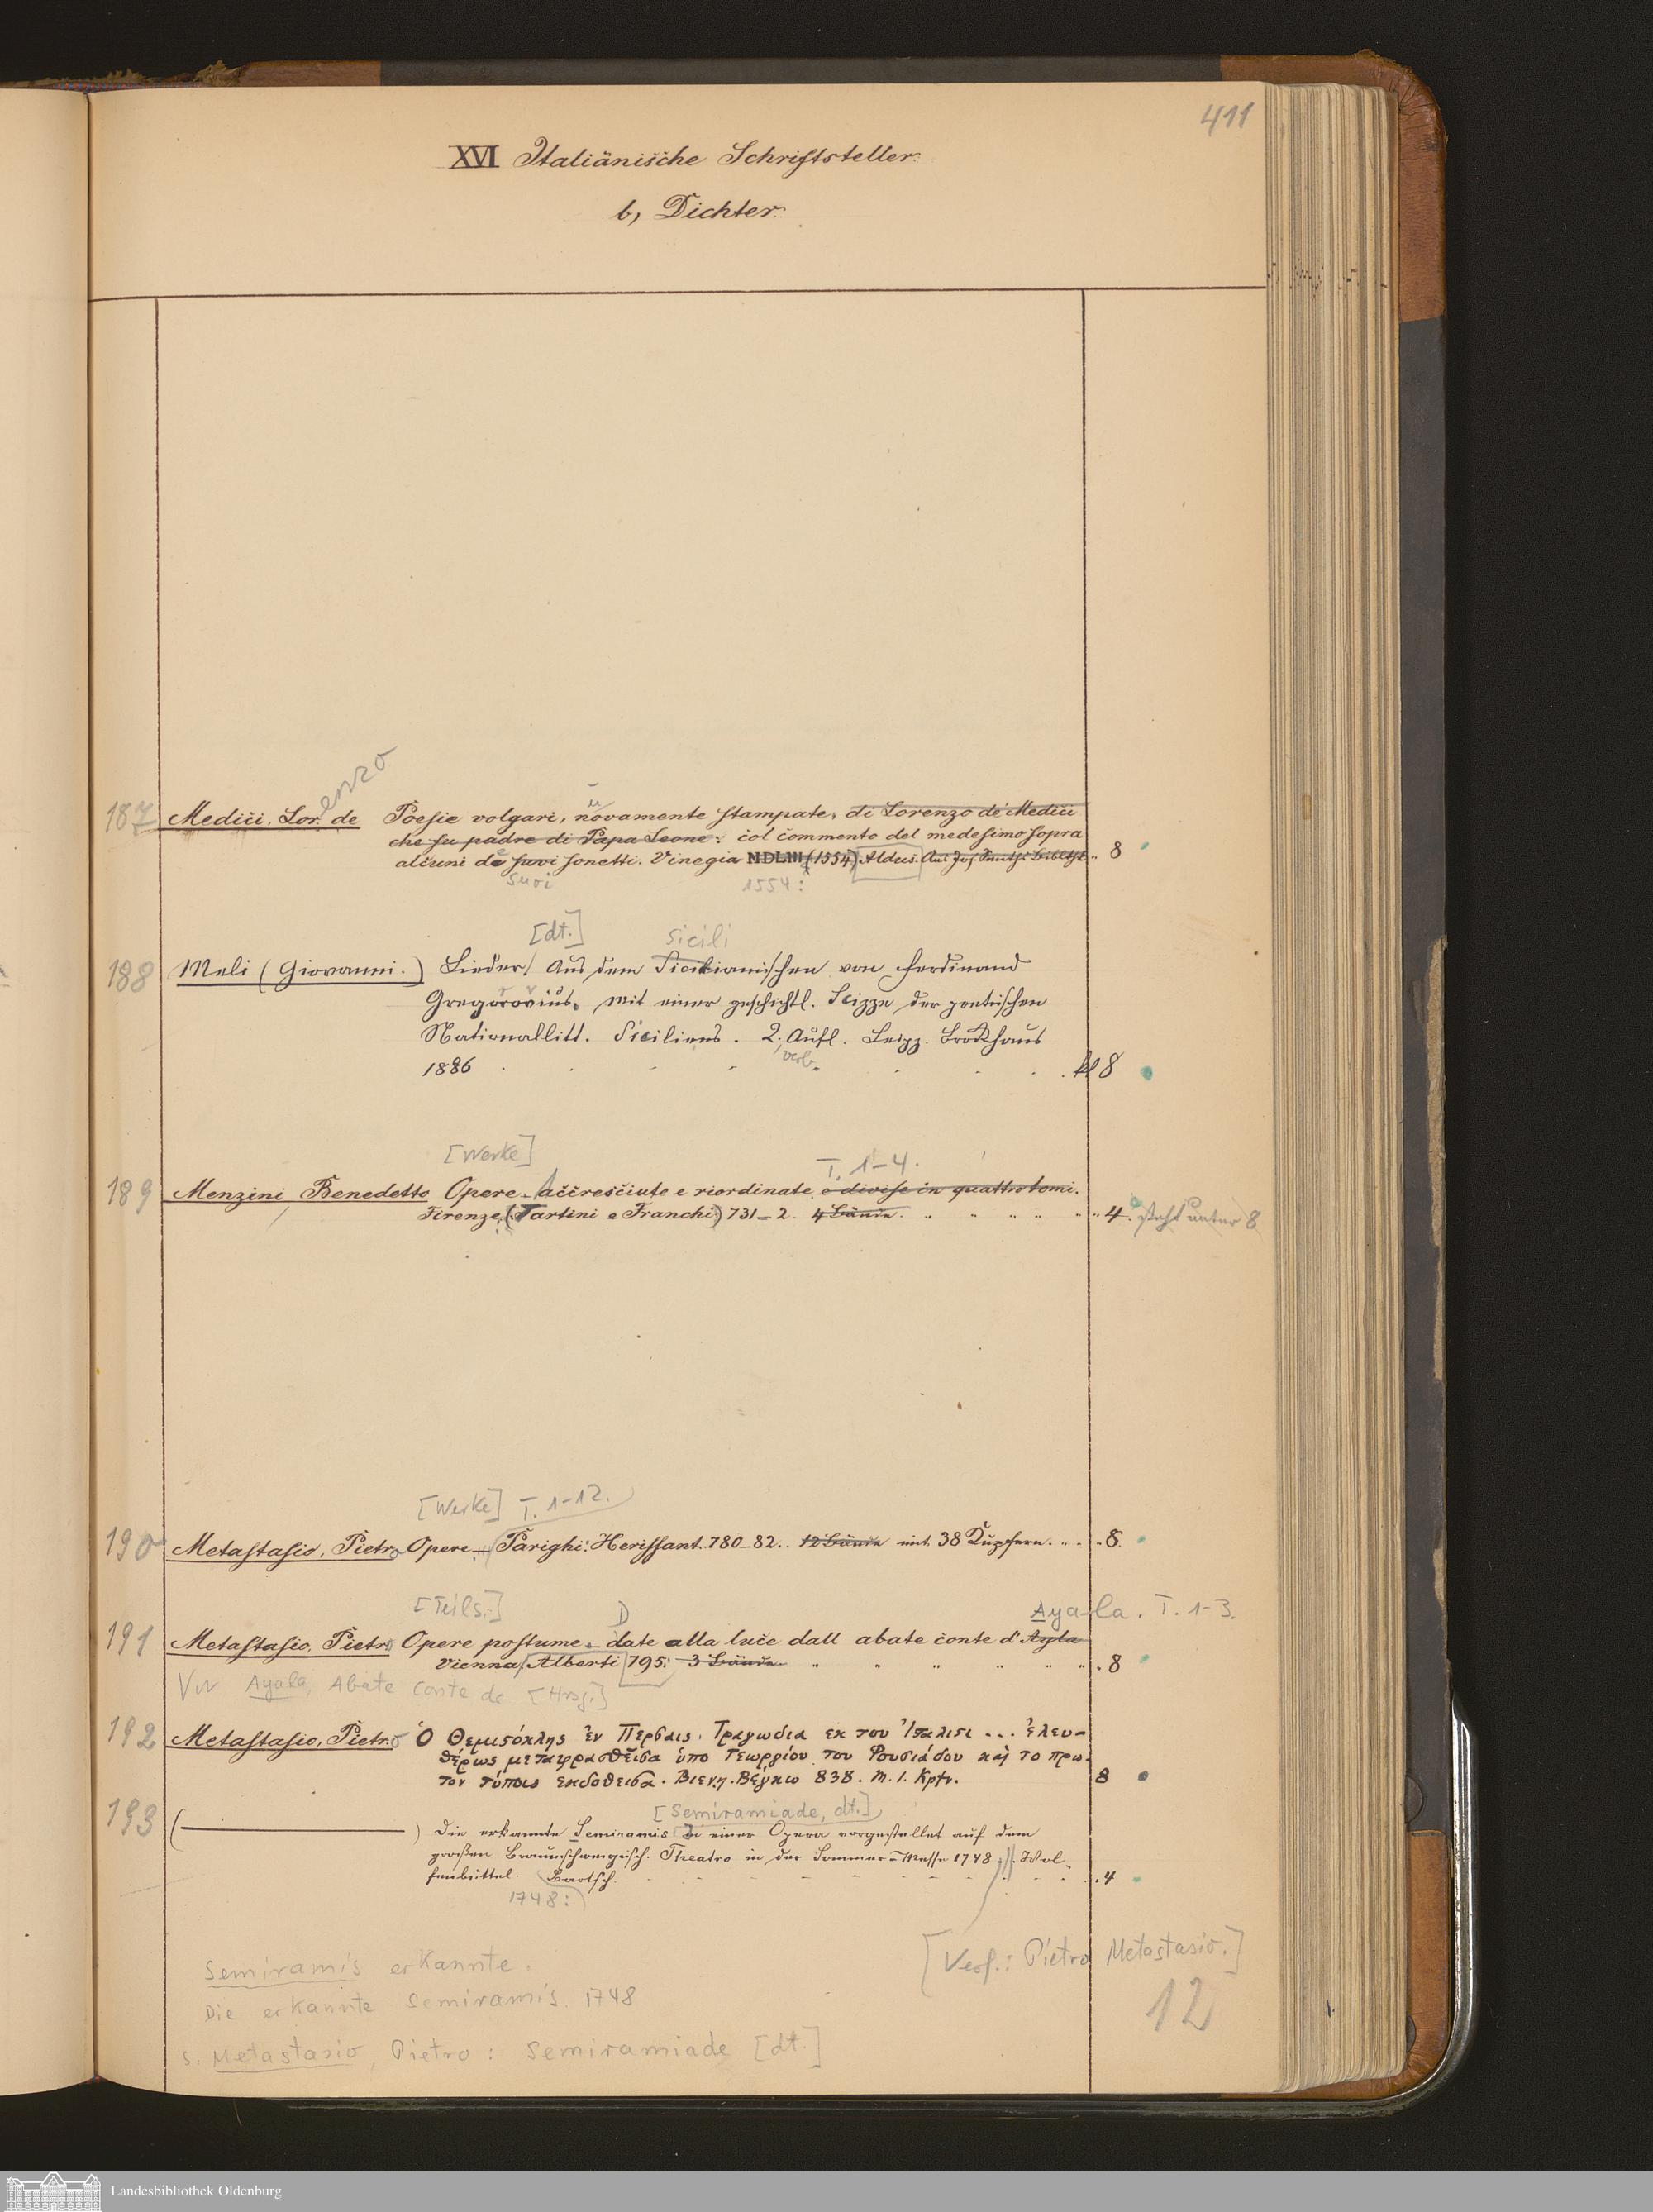 411
XVI Italiänische Schriftsteller.
b, Dichter.
enzo
187 Medici, Lor. de Poesie volgari, novamente stampate, di Lorenzo de' Medici
che fu padre di Papa Leone: col commento del medesimo sopra
alcuni de suoi sonetti. Vinegia MDLIIII (1554) Aldus. 8
suoi 1554:
[dt.] Sicili
188 Meli (Giovanni.) Lieder. Aus dem Sicilianischen von Ferdinand
Gregorovius. Mit einer geschichtl. Scizze der poetischen
Nationallitt. Siciliens. 2. Aufl. Leipz. Brockhaus
verb.
1886 kl 8
[Werke] T. 1-4.
189 Menzini, Benedetto Opere accresciute e riordinate e divise in quattro tomi.
Firenze, (Tartini e Franchi) 731-2. 4 Bände. 4. steht unter 8
[Werke] T. 1-12.
190 Metastasio, Pietro Opere. Parighi: Herissant. 780-82. 12 Bände mit 38 Kupfern. 8.
[Teils.] D Ayala. T. 1-3.
191 Metastasio, Pietro Opere postume. date alla luce dall abate conte d' Ayla
Vienna, Alberti 795: 3 Bände. 8
Ayala, Abate Conte de [Hrsg.]
192 Metastasio, Pietro Ὁ Θεμιστόκλης ἐν Πέρσαις. Τραγωδια εκ του Ἰταλισι ... ἐλευ-
θέρως μεταφρασθεῖσα ὑπο Γεωργίου του Ρουσιάδου καὶ το πρω-
τον τύποις εκδοθεισα. Βιεν.η. Βέγκω 838. m. 1. Kpfr. 8
[Semiramiade, dt.]
193 (———) Die erkannte Semiramis In einer Opera vorgestellet auf dem
großen Braunschweigisch. Theatro in der Sommer-Messe 1748. Wol-
fenbüttel. Bartsch. 4
1748:
[Verf.: Pietro Metastasio.]
Semiramis erkannte.
12
Die erkannte Semiramis. 1748
s. Metastasio, Pietro: Semiramiade [dt.]
Landesbibliothek Oldenburg